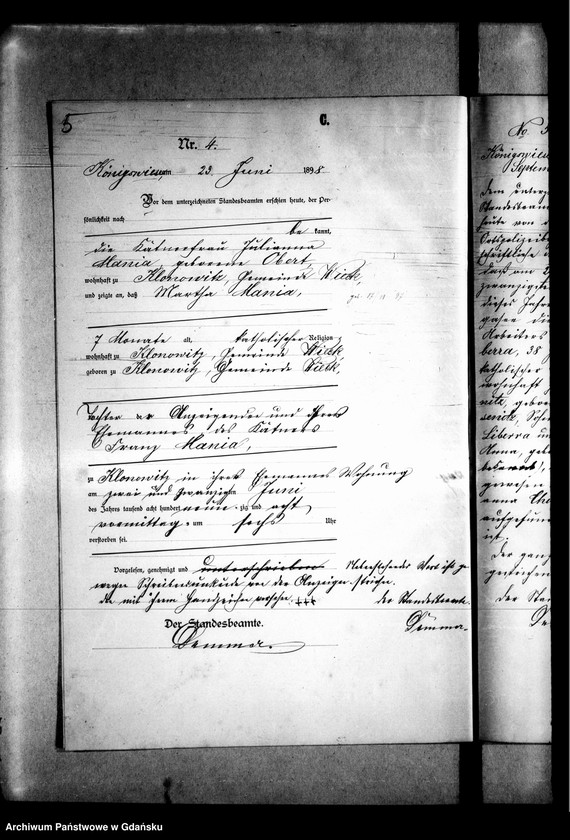 5
C.
Nr. 4.
Königswiese am 23. Juni 1898
Vor dem unterzeichneten Standesbeamten erschien heute, der Per-
sönlichkeit nach
be kannt,
die Kätnerfrau Julianna
Mania, geborene Obert,
wohnhaft zu Klonowitz, Gemeinde Wieck,
und zeigte an, daß Martha Mania,
7 Monate alt, katholischer Religion
wohnhaft zu Klonowitz, Gemeinde Wieck
geboren zu Klonowitz, Gemeinde Wieck,
Tochter der Anzeigenden und ihres
Ehemannes des Kätners
Franz Mania,
zu Klonowitz in ihres Ehemannes Wohnung
am zwei und zwanzigten Juni
des Jahres tausend acht hundert neun zig und acht
vormittag um sechs Uhr
verstorben sei.
Vorgelesen, genehmigt und unterschrieben
wegen Schreibensunkunde von der
mit ihrem Handzeichen +++
der Standesbeamte.
Der Standesbeamte.
Demmer.
Demmer.
No
Königswiese
Septem
Dem unterz
Standesbeam
heute von d
Ortspolizeib
daß am 2
zwanzigste
dieses Jahre
Arbeiters
berra, 38
katholischer
wohnhaft
Liberra un
Anna, gebo
gewesen
anna
aufgefun
ist.
Der ganz
gestrichen
Der Stan
De
Archiwum Państwowe w Gdańsku